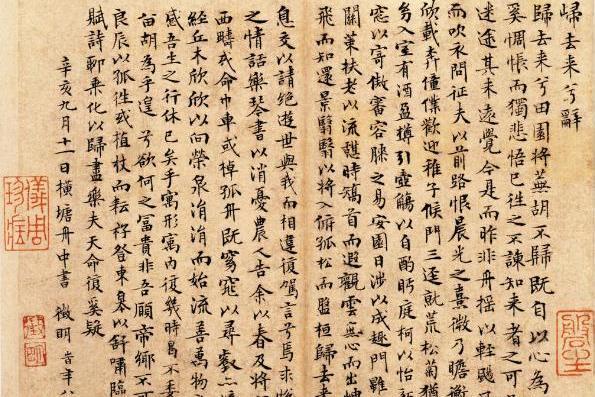 歸去来兮辭
歸去来兮田園將蕪胡不歸既自以心為
奚惆悵而獨悲悟已往之不諫知来者之可
迷途其未遠覺今是而昨非舟摇以輕颺
而吹衣問征夫以前路恨晨光之熹微乃瞻衡
欣載奔僮僕歡迎稚子候門三逕就荒松菊猶
幼入室有酒盈樽引壺觴以自酌眄庭柯以怡
窓以寄傲審容膝之易安園日涉以成趣門雖
關策扶老以流憩時矯首而遐觀雲無心而出岫
飛而知還景翳翳以將入撫孤松而盤桓歸去来
息交以請絶遊世與我而相違復駕言兮焉求
之情話樂琴書以消憂農人告余以春及將
西疇或命巾車或棹孤舟既窈窕以尋壑亦
經丘木欣欣以向榮泉涓涓而始流善萬物
感吾生之行休已矣乎寓形寓内復幾時曷不委
留胡為乎遑遑兮欲何之冨貴非吾願帝鄉不可
良辰以孤往或植杖而耘籽登東皋以舒嘯臨
賦詩聊乘化以歸盡樂夫天命復奚疑
辛亥九月十一日横塘舟中書 徵明 時年八